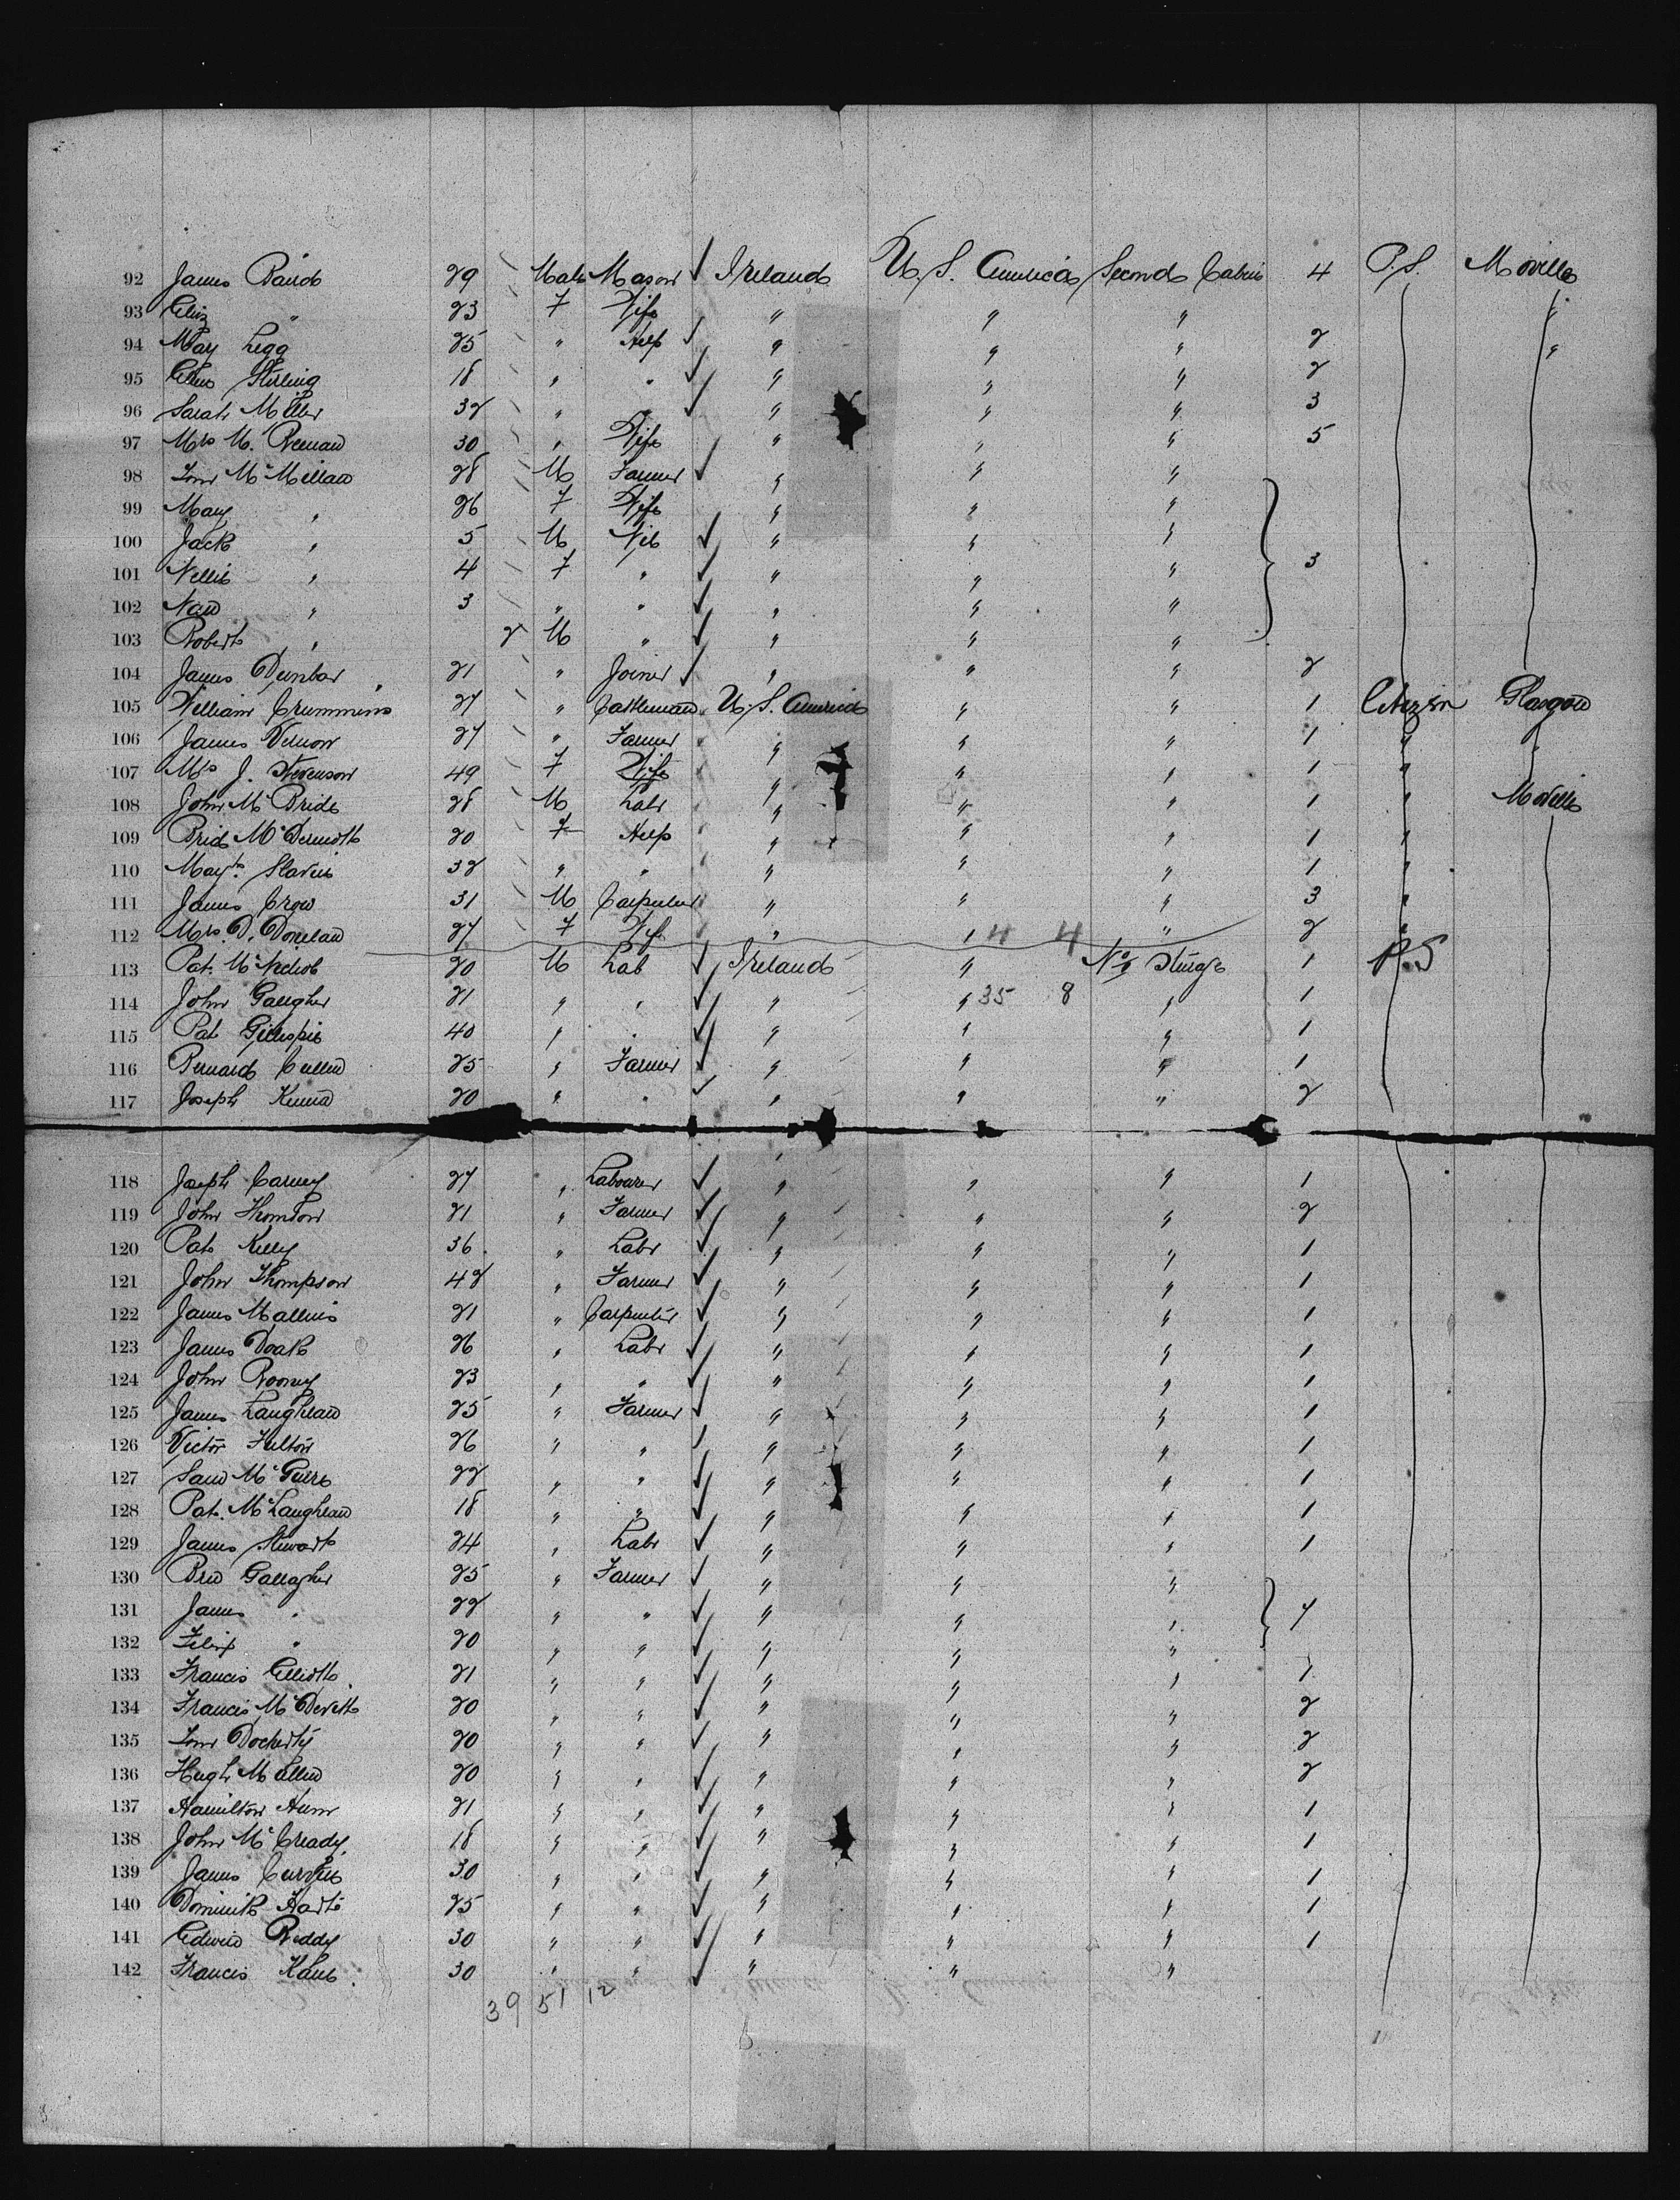 92 James Baird 29 Male Mason ✓ Ireland U. S. America Second Cabin 4 P.S. Moville
93 Eliz " 23 F Wife " " " "
94 May Legg 25 " Help ✓ " " " 2 "
95 Ellen Stirling 18 " " ✓ " " " 2
96 Sarah Miller 32 " " ✓ " " " 3
97 Mrs M. 30 " Wife " " " 5
98 Tom McMillan 28 M Farmer ✓ " " "
99 Mary " 26 F Wife " " "
100 Jack " 5 M Nil ✓ " " "
101 Nellie " 4 F " ✓ " " " 3
102 Nan " 3 " " ✓ " " "
103 Robert " 2 M " ✓ " " "
104 James Dunbar 21 " Joiner ✓ " " " 2
105 William Crummins 27 " Cattleman U. S. America " " 1 Citizen Glasgow
106 James Vernon 27 " Farmer " " " 1 " "
107 Mrs J. Stevenson 49 F Wife " " " 1 "
108 John McBride 28 M Labr " " " 1 " Moville
109 Brid McDermott 20 F Help " " " 1 "
110 Magt. Slavin 32 " " " " " 1 "
111 James Crow 31 M Carpenter " " " 3 "
112 Mrs D. Donelan 27 F Wife " " 4 4 " 2 "
113 Pat. 20 M Lab ✓ Ireland " Steerage 1 P.S
114 John Gallgher 21 " " ✓ " " 35 8 " 1
115 Pat Gillespie 40 " " ✓ " " " 1
116 Bernard Cullen 25 " Farmer ✓ " " " 1
117 Joseph Kenna 20 " " ✓ " " " 2
118 Joseph Carney 27 " Labourer ✓ " " " 1
119 John Thomson 21 " Farmer ✓ " " " 2
120 Pat Kelly 36 " Labr ✓ " " " 1
121 John Thompson 42 " Farmer ✓ " " " 1
122 James Mallins 21 " Carpenter ✓ " " " 1
123 James Doak 26 " Labr ✓ " " " 1
124 John Rooney 23 " " ✓ " " " 1
125 James Laughlan 25 " Farmer ✓ " " " 1
126 Victor Fulton 26 " " ✓ " " " 1
127 Sam McGuire 22 " " ✓ " " " 1
128 Pat. McLaughlan 18 " " ✓ " " " 1
129 James Stewart 24 " Labr ✓ " " " 1
130 Gallagher 25 " Farmer ✓ " " "
131 James " 22 " " ✓ " " " 7
132 Felix " 20 " " ✓ " " "
133 Francis Elliott 21 " " ✓ " " " 1
134 Francis McDevitt 20 " " ✓ " " " 2
135 Tom Docherty 20 " " ✓ " " " 2
136 Hugh Mullen 20 " " ✓ " " " 2
137 Hamilton 21 " " ✓ " " " 1
138 John McCready 18 " " ✓ " " " 1
139 James 30 " " ✓ " " " 1
140 Dominik Harte 25 " " ✓ " " " 1
141 Edwin Reddy 30 " " ✓ " " " 1
142 Francis Kane 30 " " ✓ " " "
39 51 12